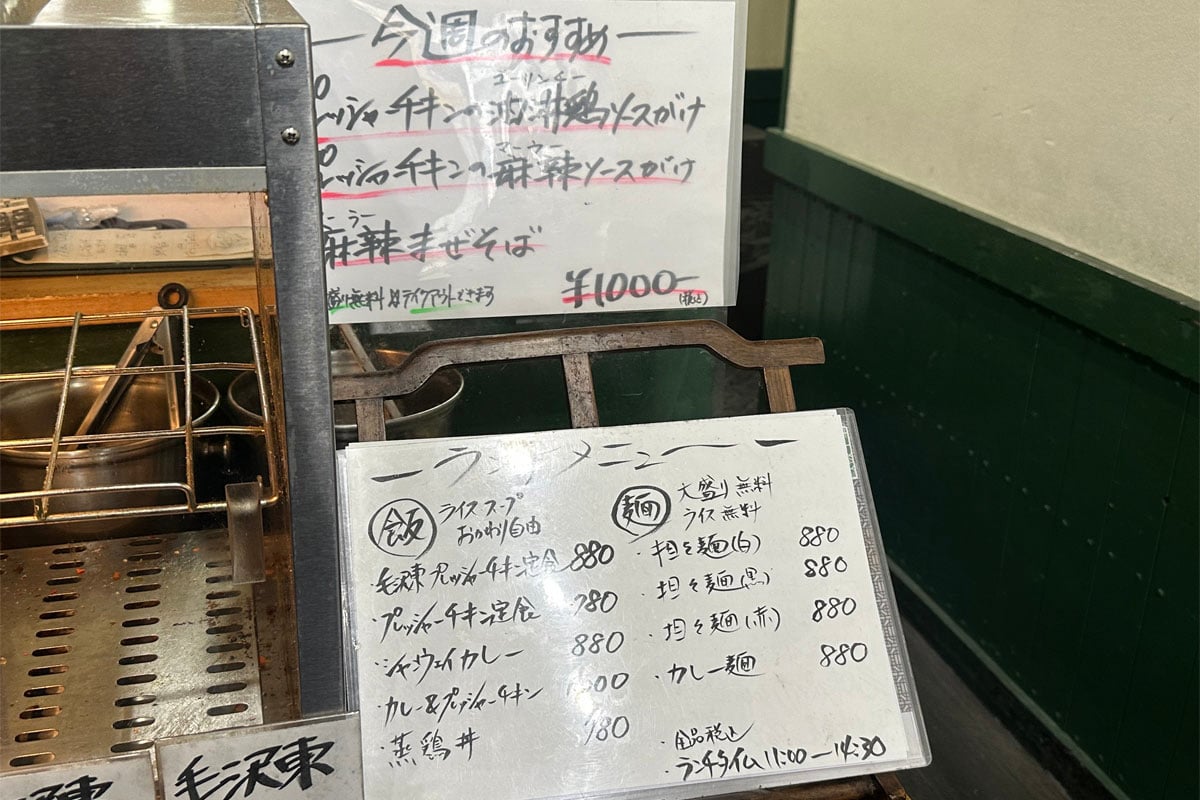 今週のおすすめ
ユーリンチー
レッシャーチキンの油淋鶏ソースがけ
マーラー
プレッシャーチキンの麻辣ソースがけ
ーラー
麻辣まぜそば
¥1000-
(税込)
盛り無料 はテイクアウトできます
ランチメニュー
飯 ライススープ
おかわり自由
・毛沢東プレッシャーチキン定食 880
・プレッシャーチキン定食 780
・シャンウェイカレー 880
・カレー&プレッシャーチキン
・蒸鶏丼
麺 大盛り無料
ライス無料
・担々麺(白) 880
・担々麺(黒) 880
・担々麺(赤) 880
・カレー麺 880
・全品税込
・ランチタイム11:00ー14:30
毛沢東
東